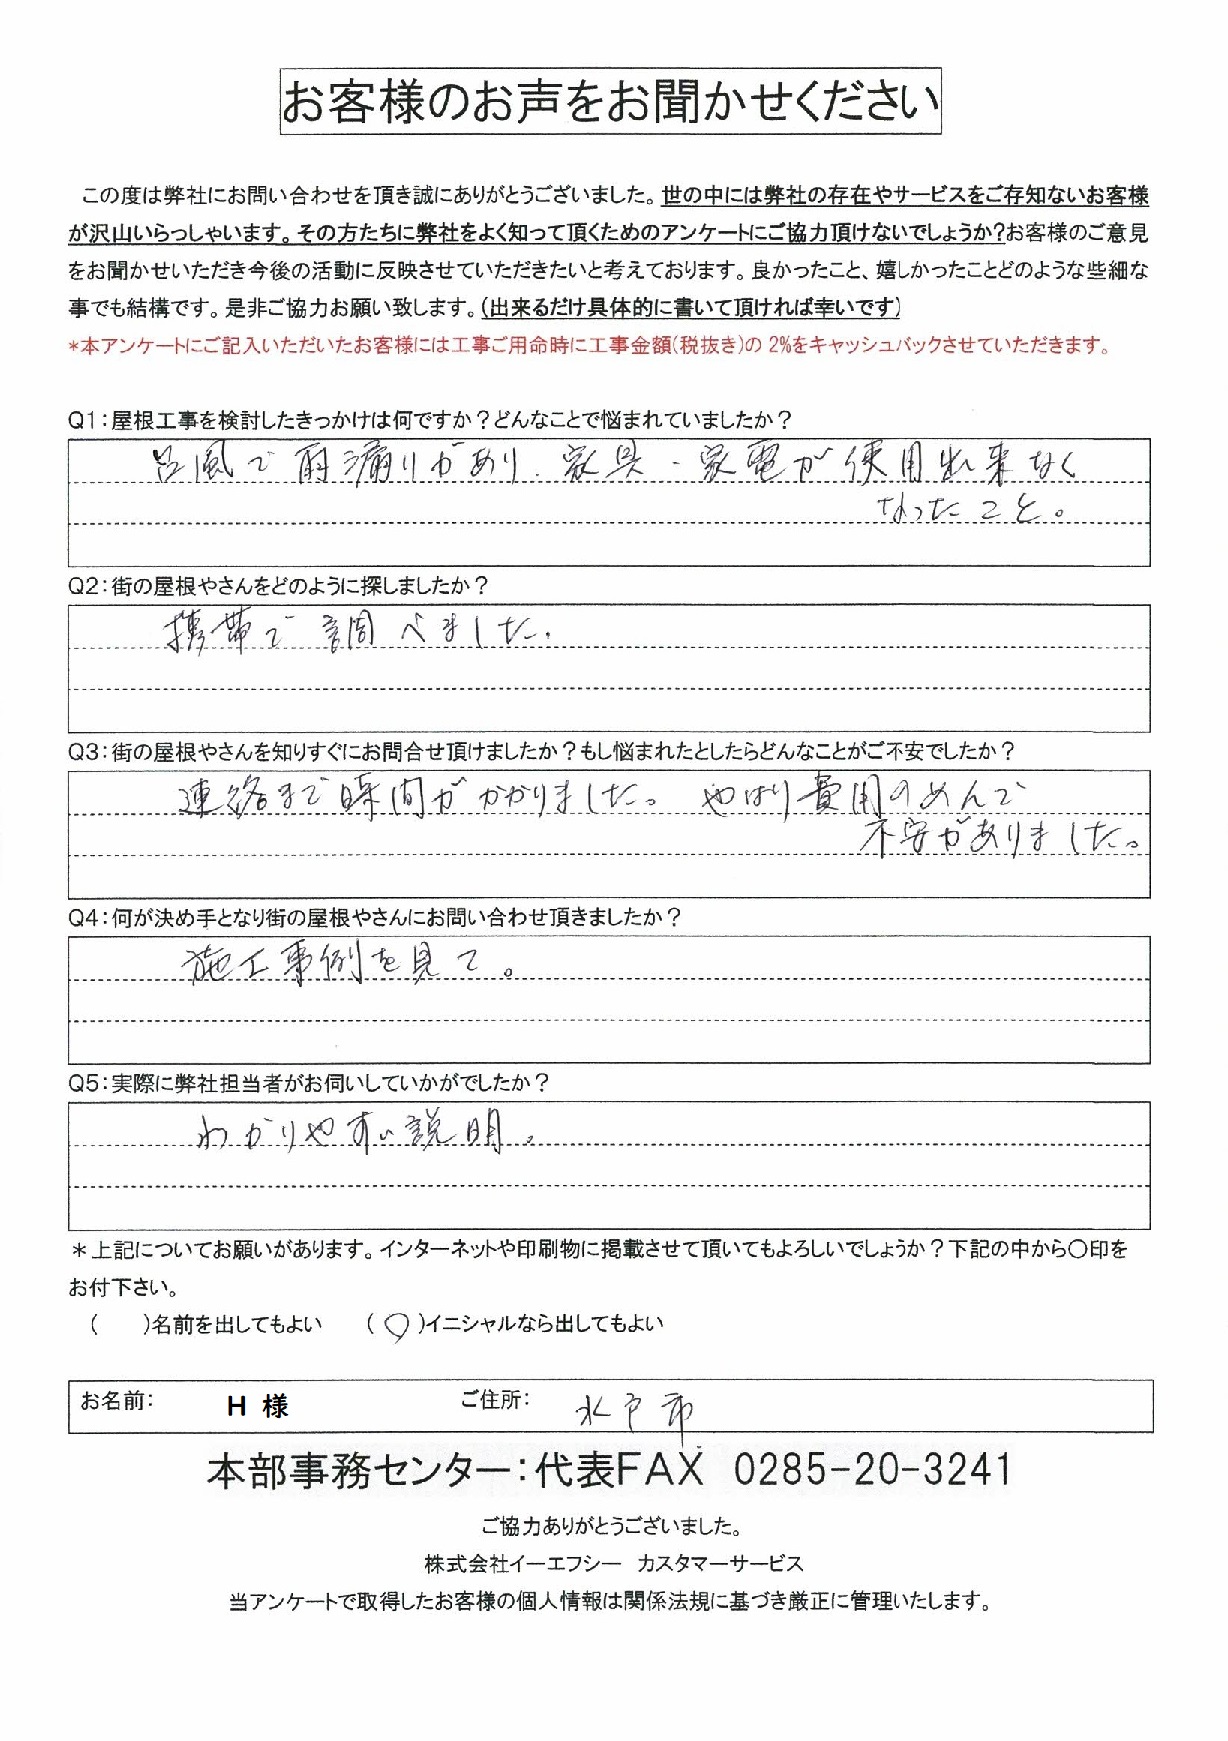 お客様のお声をお聞かせください
この度は弊社にお問い合わせを頂き誠にありがとうございました。世の中には弊社の存在やサービスをご存知ないお客様
が沢山いらっしゃいます。その方たちに弊社をよく知って頂くためのアンケートにご協力頂けないでしょうか?お客様のご意見
をお聞かせいただき今後の活動に反映させていただきたいと考えております。良かったこと、嬉しかったことどのような些細な
事でも結構です。是非ご協力お願い致します。(出来るだけ具体的に書いて頂ければ幸いです)
*本アンケートにご記入いただいたお客様には工事ご用命時に工事金額(税抜き)の 2%をキャッシュバックさせていただきます。
Q1:屋根工事を検討したきっかけは何ですか?どんなことで悩まれていましたか?
台風で雨漏りがあり、家具・家電が使用出来なく
なったこと。
Q2:街の屋根やさんをどのように探しましたか?
携帯で調べました。
Q3:街の屋根やさんを知りすぐにお問合せ頂けましたか?もし悩まれたとしたらどんなことがご不安でしたか?
連絡まで時間がかかりました。やはり費用のめんで
不安がありました。
Q4:何が決め手となり街の屋根やさんにお問い合わせ頂きましたか?
施工事例を見て。
Q5:実際に弊社担当者がお伺いしていかがでしたか?
わかりやすい説明。
*上記についてお願いがあります。インターネットや印刷物に掲載させて頂いてもよろしいでしょうか?下記の中から〇印を
お付下さい。
( )名前を出してもよい (○)イニシャルなら出してもよい
お名前: H 様 ご住所: 水戸市
本部事務センター:代表FAX 0285-20-3241
ご協力ありがとうございました。
株式会社イーエフシー カスタマーサービス
当アンケートで取得したお客様の個人情報は関係法規に基づき厳正に管理いたします。